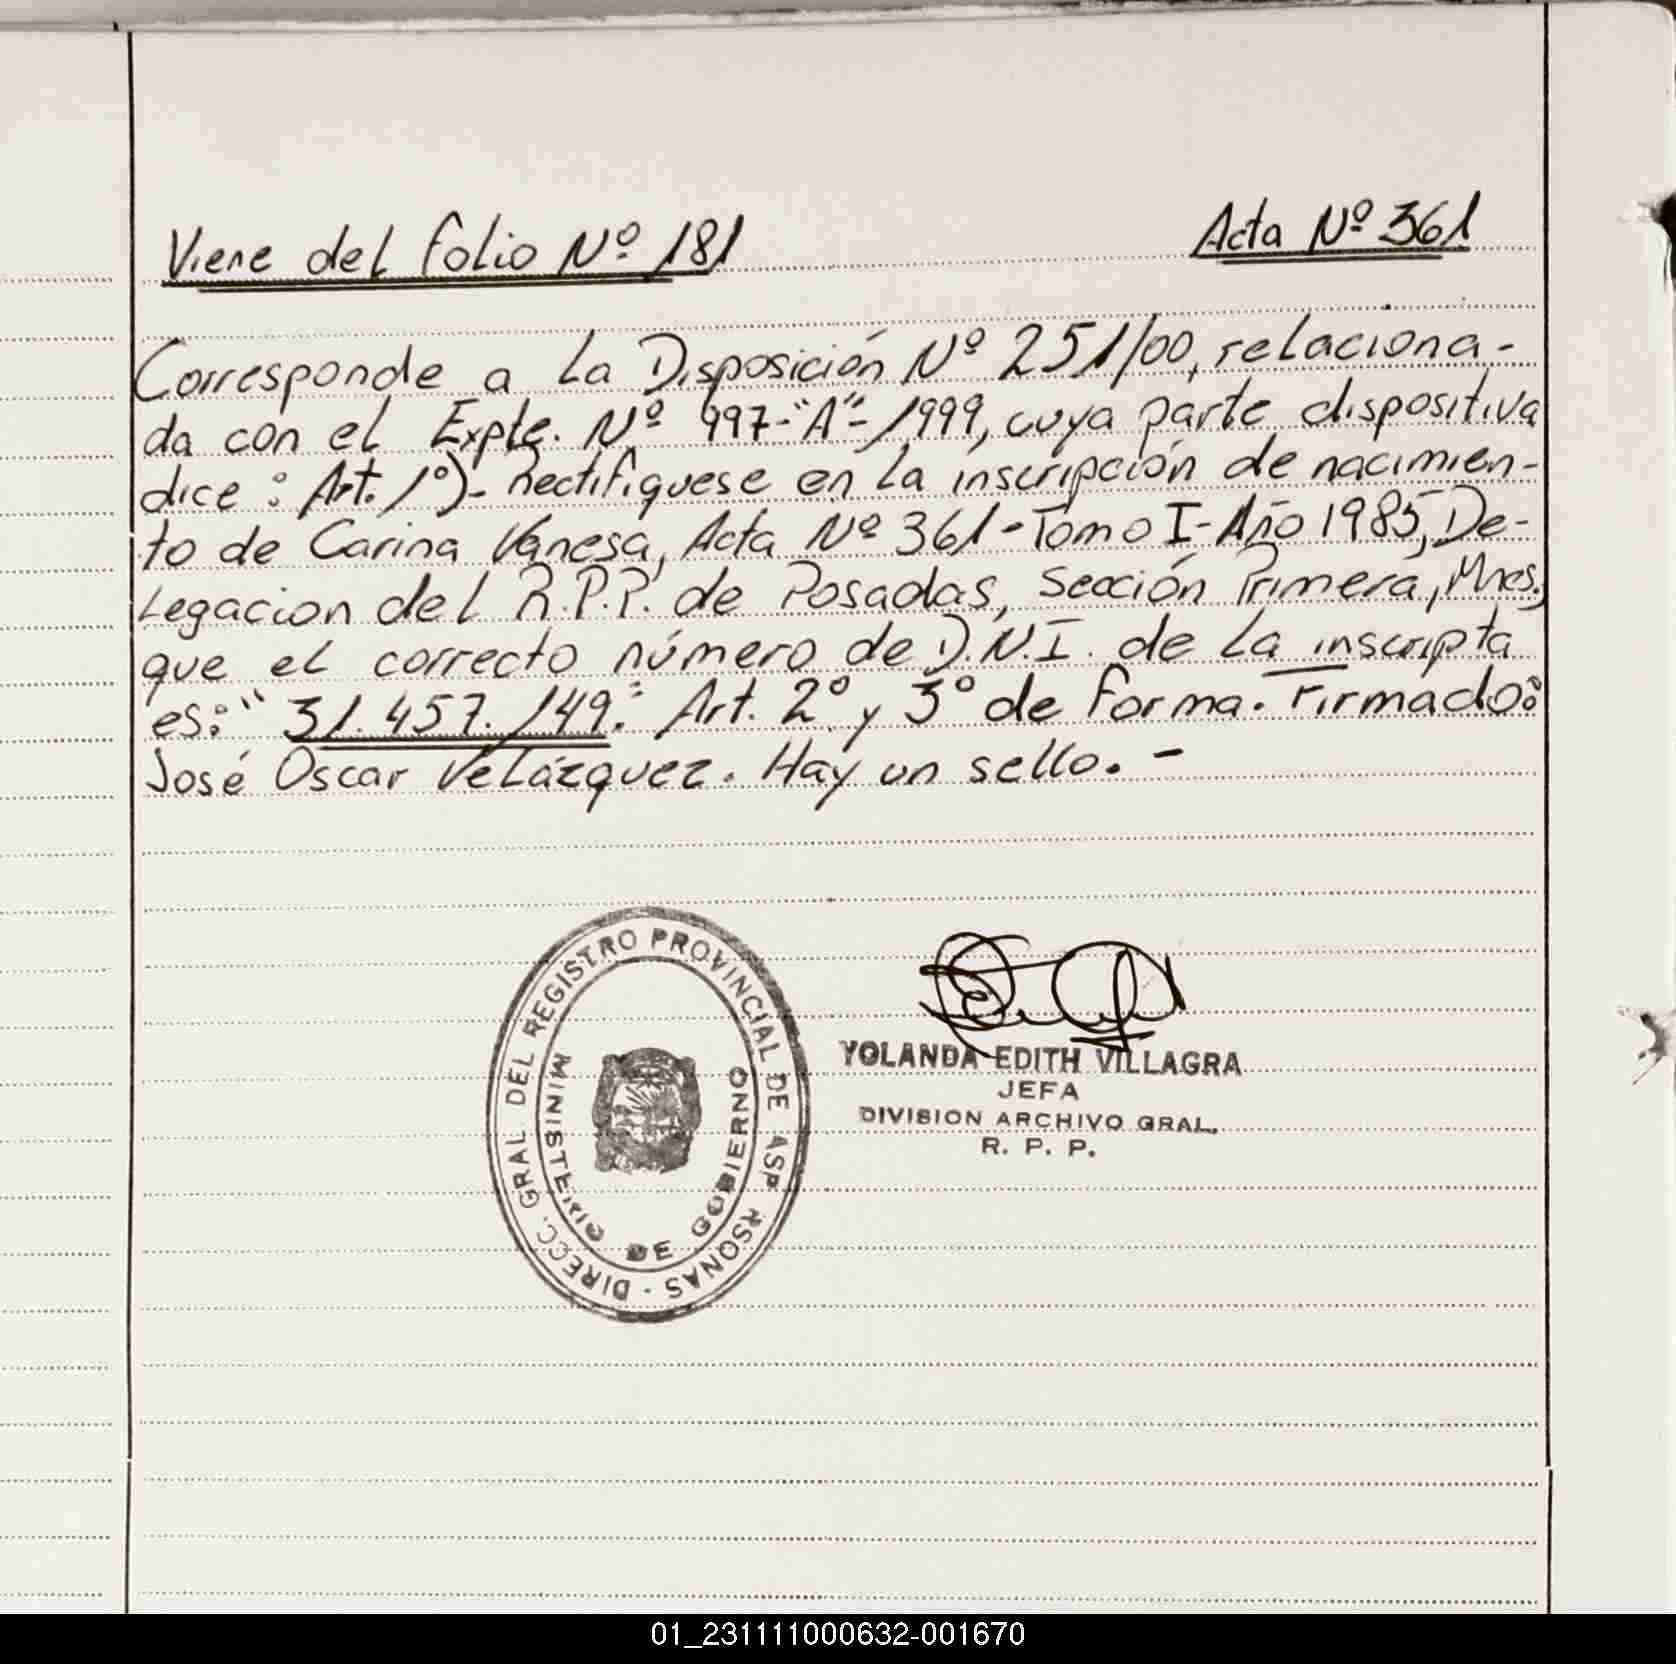 Viene del folio Nº 181
Acta Nº 361
Corresponde a la Disposición Nº 251/00, relaciona-
da con el Expte. Nº 997-"A"-1999, cuya parte dispositiva
dice: Art. 1º)- Rectifíquese en la inscripción de nacimien-
to de Carina Vanesa, Acta Nº 361-Tomo I-Año 1985, De-
legacion del R.P.P. de Posadas, Sección Primera, Mnes.,
que el correcto número de D.N.I. de la inscripta
es: "31.457.149." Art. 2º y 3º de forma. Firmado:
José Oscar Velázquez. Hay un sello.-
DIRECC. GRAL DEL REGISTRO PROVINCIAL DE
MINISTERIO DE GOBIERNO
YOLANDA EDITH VILLAGRA
JEFA
DIVISION ARCHIVO GRAL.
R. P. P.
01_231111000632-001670